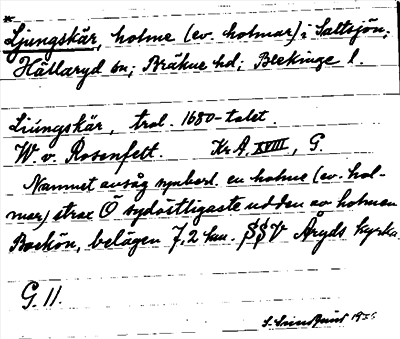 *
Ljungskär, holme (ev. holmar) i Saltsjön;
Hällaryd sn; Bräkne hd; Blekinge l.
Liúngskär, trol. 1680-talet.
W. v. Rosenfelt. Kr. A. XVIII, G.
Namnet avsåg synbarl. en holme (ev. hol-
mar) strax Ö sydöstligaste udden av holmen
Bockön, belägen 7,2 km. SSV Åryds kyrka.
G. 11.
19